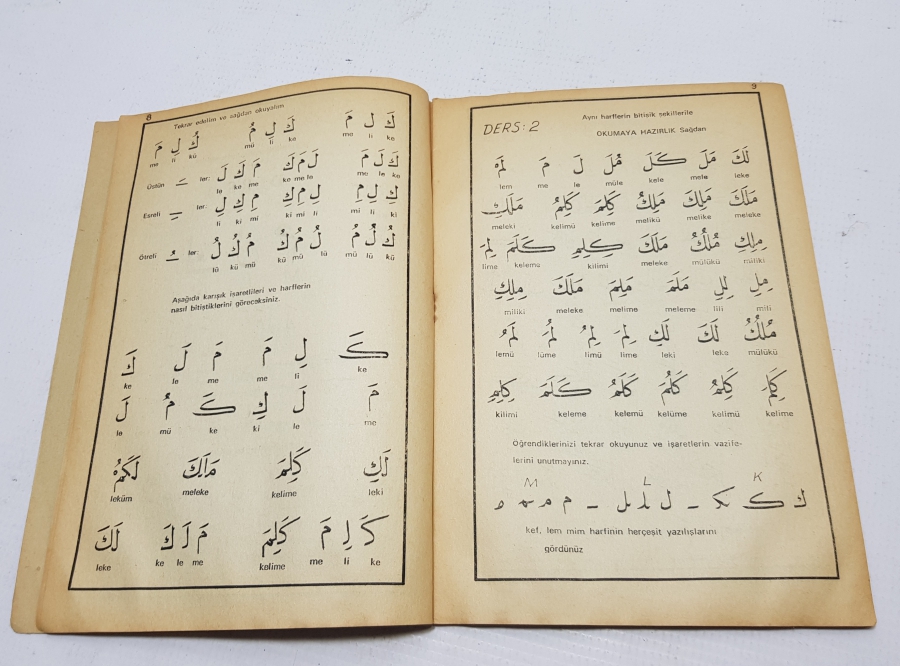 8
Tekrar edelim ve sağdan okuyalım
كَ لِ مَ كَ لِ مُ كُ لِ مَ
me li kü mü li ke me li ke
Üstün ـَ ler: كَ لَ مَ لَ مَ كَ مَ كَ لَ
le ke me ke me le me le ke
Esreli ـِ ler: كِ لِ مِ لِ مِ كِ مِ كِ لِ
li ki mi ki mi li mi li ki
Ötreli ـُ ler: كُ لُ مُ لُ مُ كُ مُ كُ لُ
lü kü mü kü mü lü mü lü kü
Aşağıda karışık işaretlileri ve harflerin
nasıl bitiştiklerini göreceksiniz.
كَ لِ مَ مَ لَ كَ
ke le me me li ke
مَ لَ كِ كَ مُ لَ
le mü ke ki le me
لَكِ كَلِمَ مَلَكَ لَكُمْ
leküm meleke kelime leki
كَ لِ مَ كَلِمَ مَ لَ كَ لَكَ
leke ke le me kelime me li ke
9
Aynı harflerin bitişik şekillerile
DERS: 2
OKUMAYA HAZIRLIK Sağdan
لَكَ مَلَ كَلَ مُلَ لَ مَ لَمْ
lem me le müle kele mele leke
مَلَكَ مَلِكَ مَلِكُ كَلِمَ كَلِمُ مَلَكِ
meleki kelimü kelime melikü melike meleke
مِلِكِ مُلُكُ مَلَكَ كِلِمِ كَلَمَ لِمَ
lime keleme kilimi meleke mülükü miliki
مِلِ لِلِ مَلَمَ مَلِمَ مَلَكَ مِلِكِ
miliki meleke melime meleme lili mili
مُلُكُ لَكَ لَكِ لِمَ لِمُ لُمَ لَمُ
lemü lüme limü lime leki leke mülükü
كَلِمَ كَلِمُ كَلُمَ كَلَمُ كَلَمَ كِلِمِ
kilimi keleme kelemü kelüme kelimü kelime
Öğrendiklerinizi tekrar okuyunuz ve işaretlerin vazife-
lerini unutmayınız.
M L K
ك كـ ـكـ – ل لـ ـلـ ـل – م مـ ـمـ ـم
kef, lem mim harfinin herçeşit yazılışlarını
gördünüz